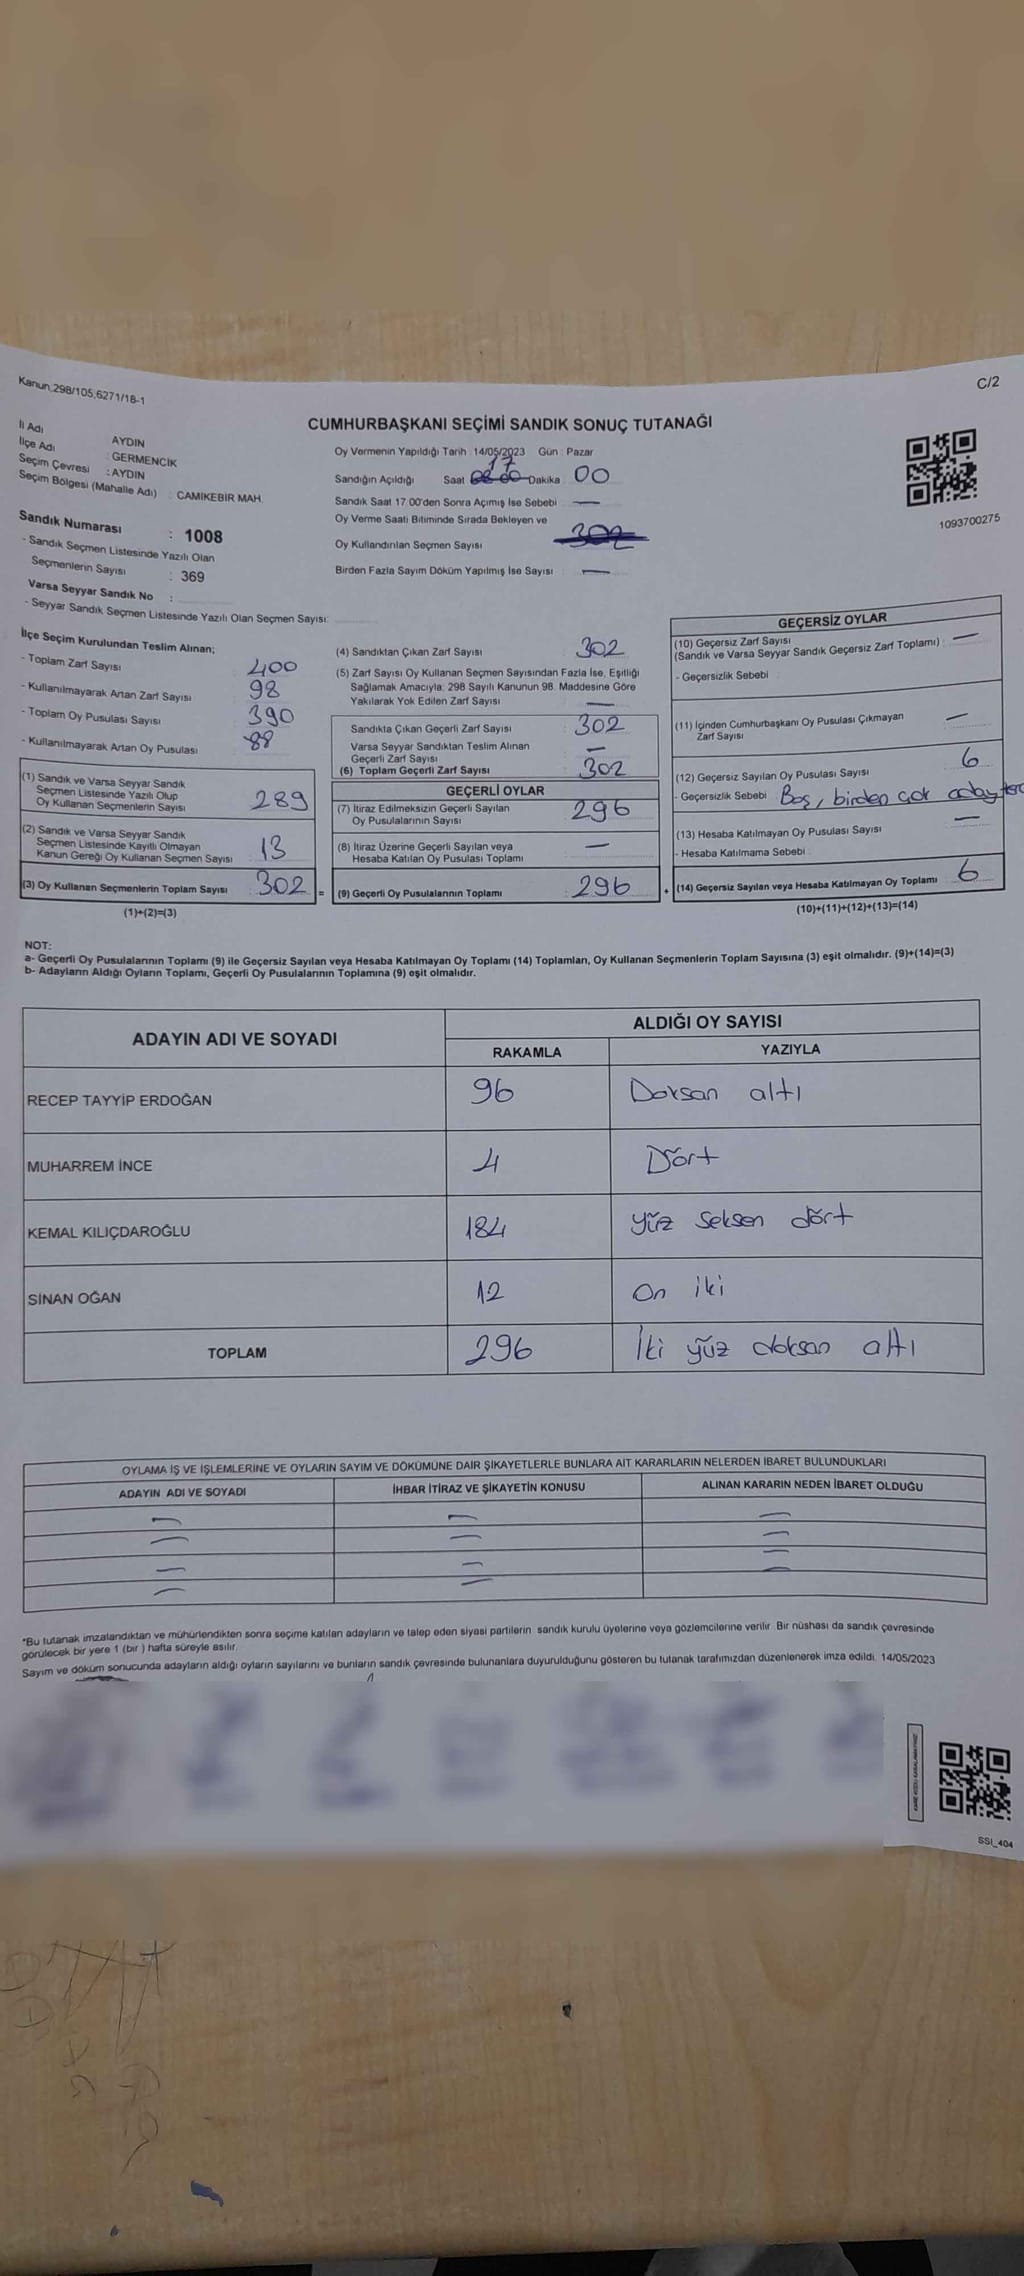 Kanun:298/105;6271/18-1
C/2
CUMHURBAŞKANI SEÇİMİ SANDIK SONUÇ TUTANAĞI
İl Adı : AYDIN
İlçe Adı : GERMENCİK
Seçim Çevresi : AYDIN
Seçim Bölgesi (Mahalle Adı) : CAMİKEBİR MAH.
Sandık Numarası : 1008
- Sandık Seçmen Listesinde Yazılı Olan
Seçmenlerin Sayısı : 369
Varsa Seyyar Sandık No :
- Seyyar Sandık Seçmen Listesinde Yazılı Olan Seçmen Sayısı:
Oy Vermenin Yapıldığı Tarih : 14/05/2023 Gün : Pazar
17
Sandığın Açıldığı Saat Dakika : 00
Sandık Saat 17:00'den Sonra Açımış İse Sebebi : —
Oy Verme Saati Bitiminde Sırada Bekleyen ve
Oy Kullandırılan Seçmen Sayısı : 302
Birden Fazla Sayım Döküm Yapılmış İse Sayısı : —
1093700275
İlçe Seçim Kurulundan Teslim Alınan;
- Toplam Zarf Sayısı : 400
- Kullanılmayarak Artan Zarf Sayısı : 98
- Toplam Oy Pusulası Sayısı : 390
- Kullanılmayarak Artan Oy Pusulası : 88
(1) Sandık ve Varsa Seyyar Sandık
Seçmen Listesinde Yazılı Olup
Oy Kullanan Seçmenlerin Sayısı : 289
(2) Sandık ve Varsa Seyyar Sandık
Seçmen Listesinde Kayıtlı Olmayan
Kanun Gereği Oy Kullanan Seçmen Sayısı : 13
(3) Oy Kullanan Seçmenlerin Toplam Sayısı : 302 =
(1)+(2)=(3)
(4) Sandıktan Çıkan Zarf Sayısı : 302
(5) Zarf Sayısı Oy Kullanan Seçmen Sayısından Fazla İse, Eşitliği
Sağlamak Amacıyla; 298 Sayılı Kanunun 98. Maddesine Göre
Yakılarak Yok Edilen Zarf Sayısı : —
Sandıkta Çıkan Geçerli Zarf Sayısı : 302
Varsa Seyyar Sandıktan Teslim Alınan
Geçerli Zarf Sayısı : —
(6) Toplam Geçerli Zarf Sayısı : 302
GEÇERLİ OYLAR
(7) İtiraz Edilmeksizin Geçerli Sayılan
Oy Pusulalarının Sayısı : 296
(8) İtiraz Üzerine Geçerli Sayılan veya
Hesaba Katılan Oy Pusulası Toplamı : —
(9) Geçerli Oy Pusulalarının Toplamı : 296 +
GEÇERSİZ OYLAR
(10) Geçersiz Zarf Sayısı
(Sandık ve Varsa Seyyar Sandık Geçersiz Zarf Toplamı) : —
- Geçersizlik Sebebi :
(11) İçinden Cumhurbaşkanı Oy Pusulası Çıkmayan
Zarf Sayısı : —
(12) Geçersiz Sayılan Oy Pusulası Sayısı : 6
- Geçersizlik Sebebi : Boş, birden çok
(13) Hesaba Katılmayan Oy Pusulası Sayısı : —
- Hesaba Katılmama Sebebi :
(14) Geçersiz Sayılan veya Hesaba Katılmayan Oy Toplamı : 6
(10)+(11)+(12)+(13)=(14)
NOT:
a- Geçerli Oy Pusulalarının Toplamı (9) ile Geçersiz Sayılan veya Hesaba Katılmayan Oy Toplamı (14) Toplamları, Oy Kullanan Seçmenlerin Toplam Sayısına (3) eşit olmalıdır. (9)+(14)=(3)
b- Adayların Aldığı Oyların Toplamı, Geçerli Oy Pusulalarının Toplamına (9) eşit olmalıdır.
ADAYIN ADI VE SOYADI
ALDIĞI OY SAYISI
RAKAMLA YAZIYLA
RECEP TAYYİP ERDOĞAN 96 Doksan altı
MUHARREM İNCE 4 Dört
KEMAL KILIÇDAROĞLU 184 yüz seksen dört
SİNAN OĞAN 12 on iki
TOPLAM 296 İki yüz doksan altı
OYLAMA İŞ VE İŞLEMLERİNE VE OYLARIN SAYIM VE DÖKÜMÜNE DAİR ŞİKAYETLERLE BUNLARA AİT KARARLARIN NELERDEN İBARET BULUNDUKLARI
ADAYIN ADI VE SOYADI İHBAR İTİRAZ VE ŞİKAYETİN KONUSU ALINAN KARARIN NEDEN İBARET OLDUĞU
— — —
— — —
— — —
— — —
*Bu tutanak imzalandıktan ve mühürlendikten sonra seçime katılan adayların ve talep eden siyasi partilerin sandık kurulu üyelerine veya gözlemcilerine verilir. Bir nüshası da sandık çevresinde
görülecek bir yere 1 (bir ) hafta süreyle asılır.
Sayım ve döküm sonucunda adayların aldığı oyların sayılarını ve bunların sandık çevresinde bulunanlara duyurulduğunu gösteren bu tutanak tarafımızdan düzenlenerek imza edildi. 14/05/2023
SSI_404